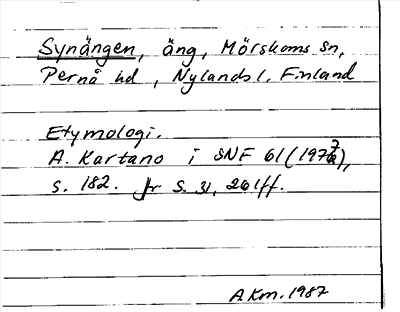 Synängen, äng, Mörskoms sn,
Pernå hd, Nylands l, Finland
Etymologi.
A. Kartano i SNF 61 (1977),
s. 182. Jfr s. 31, 261ff.
A.Km. 1987